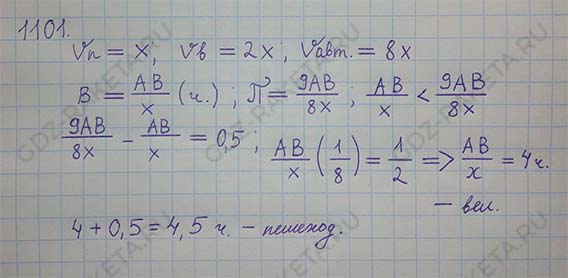 1101.
Vп = x, Vв = 2x; Vавт. = 8x
В = AB/x (ч.); П = 9AB/8x; AB/x < 9AB/8x
9AB/8x - AB/x = 0,5; AB/x (1/8) = 1/2 => AB/x = 4 ч.
- вел.
4 + 0,5 = 4,5 ч. - пешеход.
GDZ-RAKETA.RU